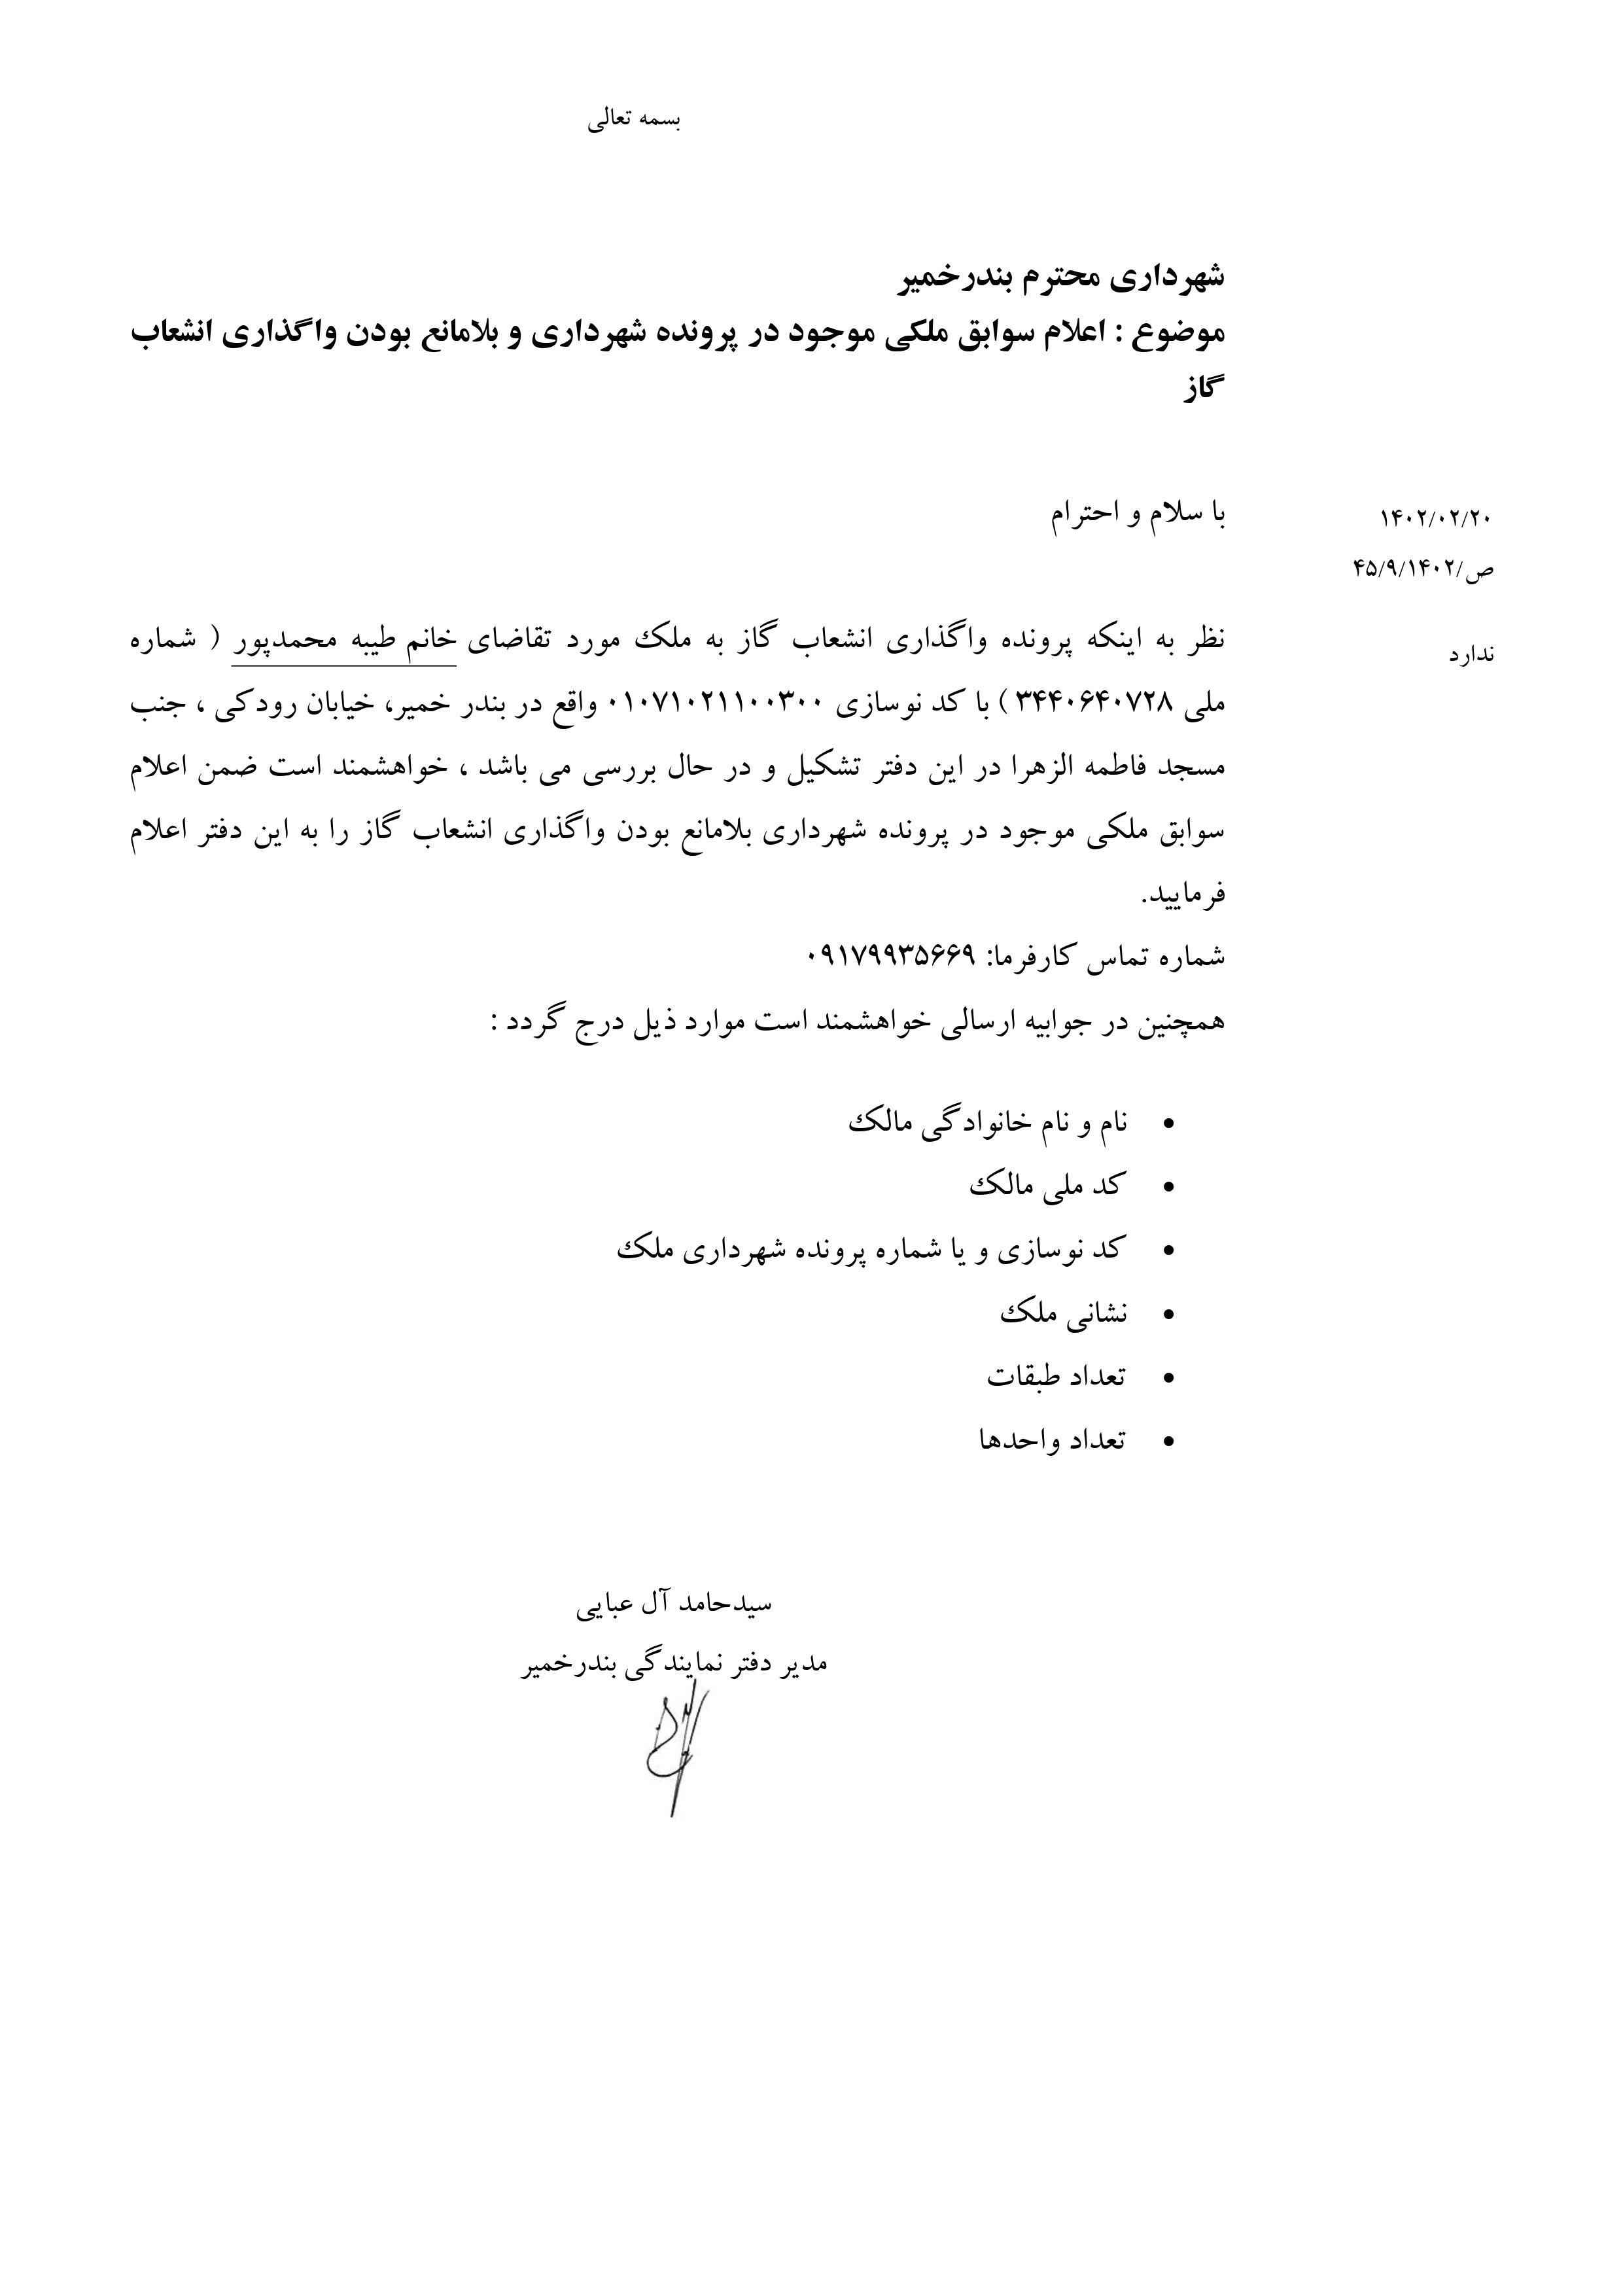 بسمه تعالی
شهرداری محترم بندرخمیر
موضوع : اعلام سوابق ملکی موجود در پرونده شهرداری و بلامانع بودن واگذاری انشعاب
گاز
۱۴۰۲/۰۲/۲۰
ص/۴۵/۹/۱۴۰۲
ندارد
با سلام و احترام
نظر به اینکه پرونده واگذاری انشعاب گاز به ملک مورد تقاضای خانم طیبه محمدپور ( شماره
ملی ۳۴۴۰۶۴۰۷۲۸ ) با کد نوسازی ۰۱۰۷۱۰۲۱۱۰۰۳۰۰ واقع در بندر خمیر، خیابان رودکی ، جنب
مسجد فاطمه الزهرا در این دفتر تشکیل و در حال بررسی می باشد ، خواهشمند است ضمن اعلام
سوابق ملکی موجود در پرونده شهرداری بلامانع بودن واگذاری انشعاب گاز را به این دفتر اعلام
فرمایید.
شماره تماس کارفرما: ۰۹۱۷۹۹۳۵۶۶۹
همچنین در جوابیه ارسالی خواهشمند است موارد ذیل درج گردد :
• نام و نام خانوادگی مالک
• کد ملی مالک
• کد نوسازی و یا شماره پرونده شهرداری ملک
• نشانی ملک
• تعداد طبقات
• تعداد واحدها
سیدحامد آل عبایی
مدیر دفتر نمایندگی بندرخمیر